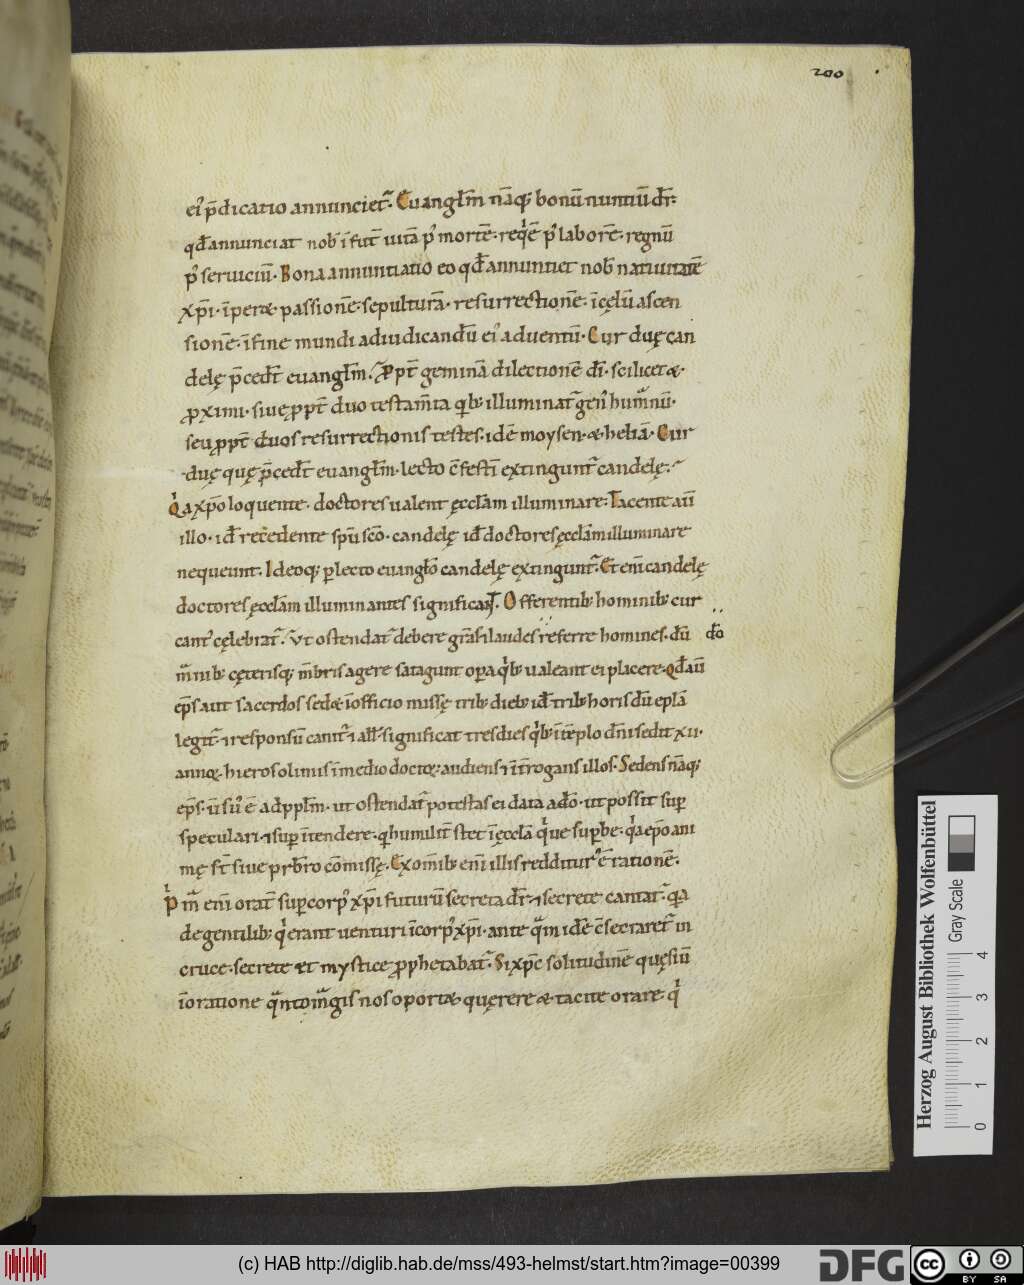 200
ei᷒ p̄dicatio annuncietͬ. Euangl̄m nāq; bonū nuntiū dr̄.
qd̄ annunciat nob̄ ī fut̄ uitā p᷒ mortē. reqͥē p᷒ laborē. regnū
p᷒ seruiciū. Bona annuntiatio eo qd̄ annuntiet nob̄ natiuitatē
xp̄i. īperæ. passionē. sepulturā. resurrectionē. ī cęlū ascen
sionē. ī fine mundi ad iudicandū ei᷒ aduentū. Cur duę can
delę p̄cedt̄ euangl̄m. Ꝓpt̄ geminā dilectionē dī. scilicet &
ꝓximi. siue ꝓpt̄ duo testam̄ta qͥb; illuminatͬ gen᷒ humͣnū.
seu ꝓpt̄ duos resurrectionis testes. idē moysen. & heliā. Cur
duę quę p̄cedt̄ euangl̄m. lecto ē festī extinguntͬ candelę.
Qͥa xp̄o loquente. doctores ualent ęccl̄am illuminare. Tacente aū
illo. id̄ recedente sp̄u sc̄o. candelę id̄ doctores ęccl̄am illuminare
nequeunt. Ideoq; plecto euangl̄o candelę extinguntͬ. Et enī candelę
doctores ęccl̄am illuminantes significat. Offerentib; hominib; cur
cant᷒ cęlebratͬ. Vt ostendatͬ debere gr̄as ⁊ laudes referre homines. dū dō
mͣnib; cęterisq; m̄bris agere satagunt opa qͥb; ualeant ei placere. qd̄ aū
ep̄s aut sacerdos sedæ ī officio missę trib; dieb; id̄ trib; horis dū ep̄la
legitͬ. ⁊ responsū canitͬ ⁊ all̄. significat tres dies qͥb; ī tēplo dn̄i sedit xii.
anno. hierosolimis ī medio doctoꝝ. audiens ⁊ īt̄rogans illos. Sedens nāq;
ep̄s. ūsu᷒ ē ad ppl̄m. ut ostendatͬ potestas ei data a dō. ut possit sup
speculari. ⁊ sup ītendere. qͥ humilit̄ stet ī ęccl̄a qͥue supbe. qͥa ep̄o ani
mę st̄ siue prb̄ro cōmissę. Exomīb; enī illis redditur᷒ ē rationē.
Pͥmͣ enī orat̄ sup corp᷒ xp̄i futurū secreta dr̄. ⁊ secrete cantatͬ. qͥa
de gentilib; qͥ erant uenturi ī corp᷒ xp̄i. ante qͣm idē ē secraret̄ in
cruce. secrete et mystice ꝓphetabatͬ. Si xp̄c solitudinē quęsiū
ī oratione qͣnto mͣgis nos oportæ quęrere & tacite orare. qͥ
Herzog August Bibliothek Wolfenbüttel
Gray Scale
0 1 2 3 4
(c) HAB http://diglib.hab.de/mss/493-helmst/start.htm?image=00399
DFG
cc BY SA